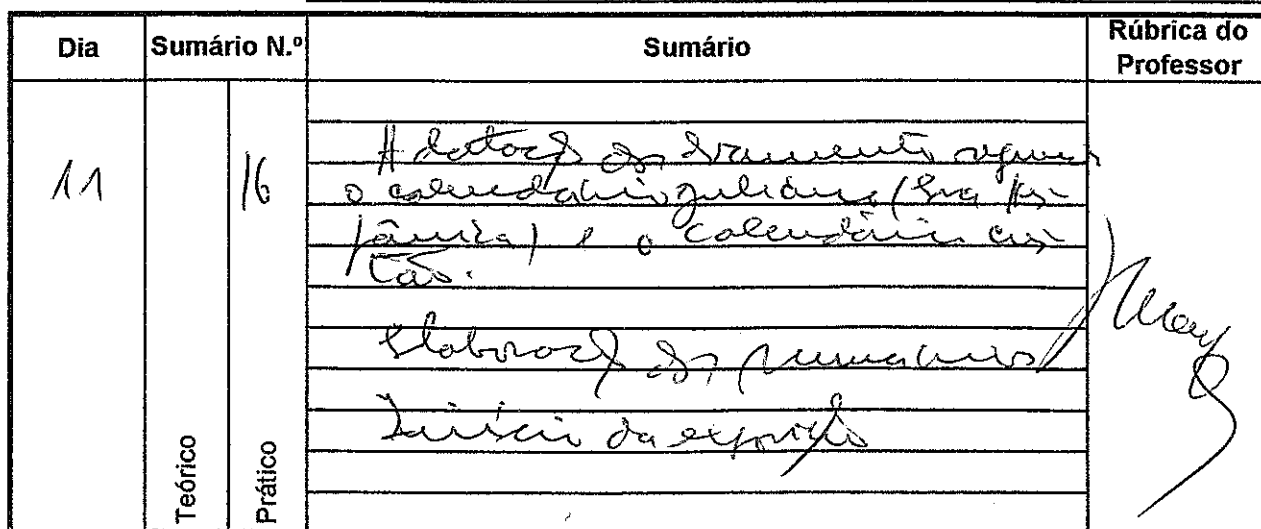 Dia Sumário N.º Sumário Rúbrica do Professor
11 16 A datação dos documentos segundo
o calendário juliano (Era his-
pânica) e o calendário cris-
tão.
Elaboração dos sumários
Início da exposição
Teórico Prático